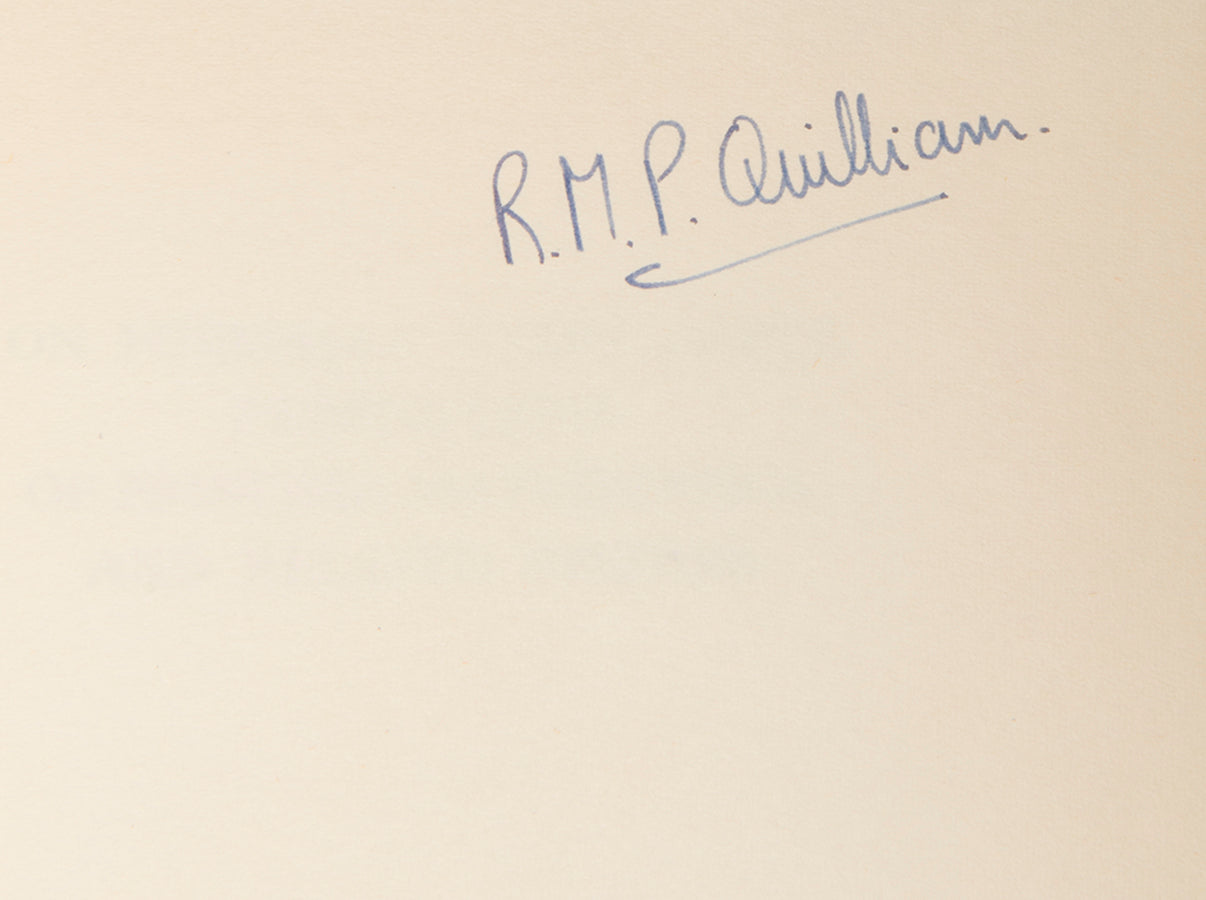 R.M.P. Quilliam.